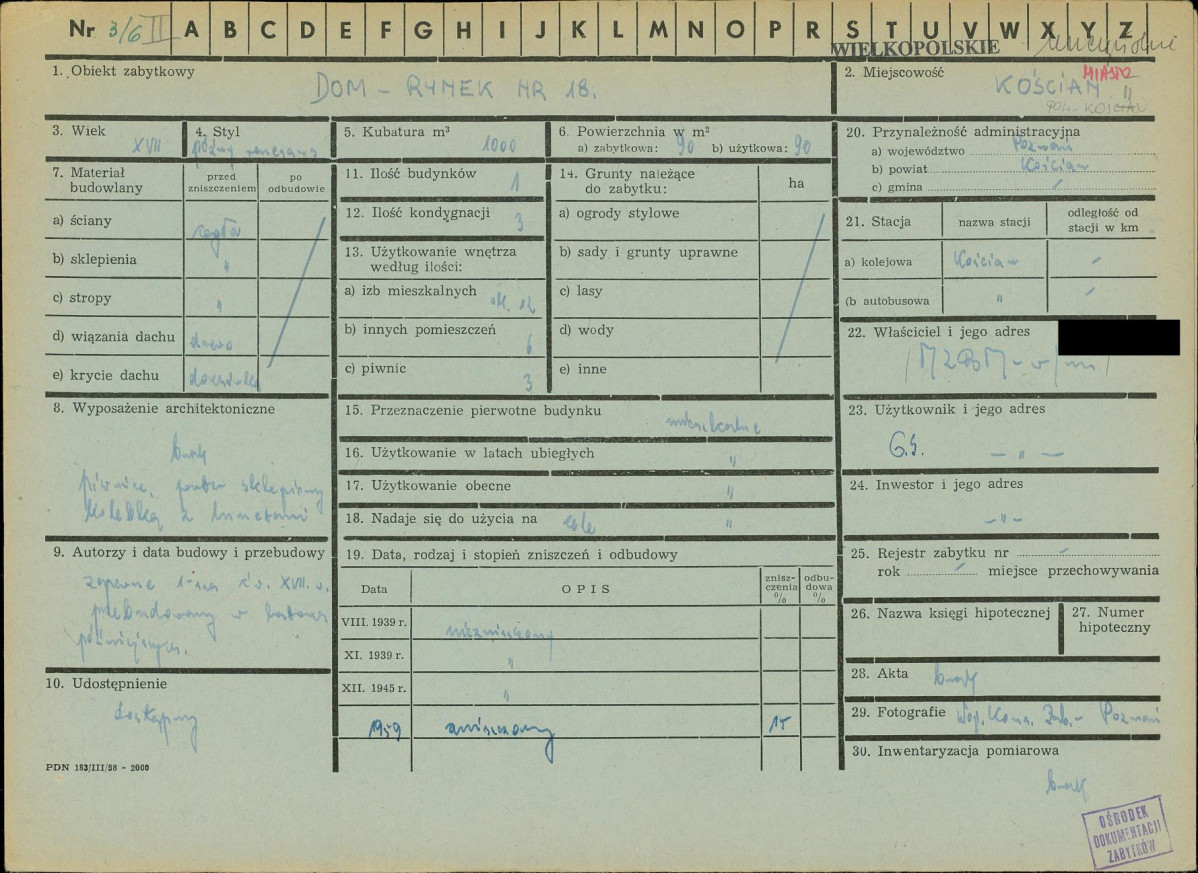 Nr 3/6 II A B C D E F G H I J K L M N O P R S T U V W X Y Z
WIELKOPOLSKIE
1. Obiekt zabytkowy
DOM – RYNEK NR 18.
2. Miejscowość
MIASTO
KOŚCIAN
pow. KOŚCIAN
3. Wiek
XVII
4. Styl
późny renesans
5. Kubatura m³
1000
6. Powierzchnia w m²
a) zabytkowa: 90 b) użytkowa: 90
7. Materiał budowlany
przed zniszczeniem
po odbudowie
a) ściany cegła
b) sklepienia "
c) stropy "
d) wiązania dachu drewo
e) krycie dachu dachówka
8. Wyposażenie architektoniczne
brak
piwnice, parter sklepiony
kolebką z lunetami
9. Autorzy i data budowy i przebudowy
zapewne 1-sza XVII w.
przebudowany w
późniejszych.
10. Udostępnienie
dostępny
PDN 183/III/58 - 2000
11. Ilość budynków 1
12. Ilość kondygnacji 3
13. Użytkowanie wnętrza według ilości:
a) izb mieszkalnych ok. 12
b) innych pomieszczeń 6
c) piwnic 3
14. Grunty należące do zabytku:
ha
a) ogrody stylowe
b) sady i grunty uprawne
c) lasy
d) wody
e) inne
15. Przeznaczenie pierwotne budynku mieszkalne
16. Użytkowanie w latach ubiegłych "
17. Użytkowanie obecne "
18. Nadaje się do użycia na cele "
19. Data, rodzaj i stopień zniszczeń i odbudowy
Data
OPIS
znisz-czenia %
odbu-dowa %
VIII. 1939 r. niezniszczony
XI. 1939 r. "
XII. 1945 r. "
1959 zniszczony 15
20. Przynależność administracyjna
a) województwo Poznań
b) powiat Kościan
c) gmina
21. Stacja
nazwa stacji
odległość od stacji w km
a) kolejowa Kościan
(b autobusowa "
22. Właściciel i jego adres
(MZBM - w/m)
23. Użytkownik i jego adres
- " -
24. Inwestor i jego adres
- " -
25. Rejestr zabytku nr
rok miejsce przechowywania
26. Nazwa księgi hipotecznej
27. Numer hipoteczny
28. Akta brak
29. Fotografie Woj. Kons. Zab. - Poznań
30. Inwentaryzacja pomiarowa
brak
OŚRODEK
DOKUMENTACJI
ZABYTKÓW